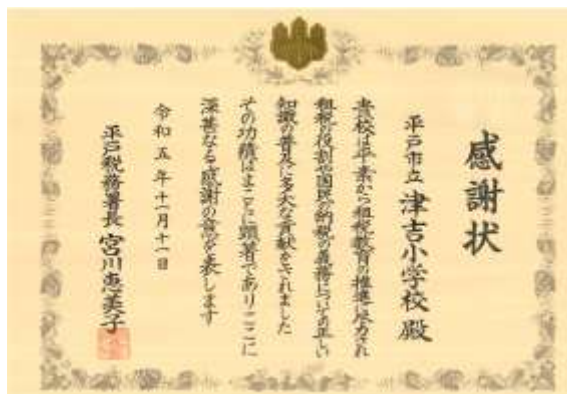 感謝状
平戸市立 津吉小学校 殿
貴校は平素から租税教育の推進に尽力され
租税の役割や国民の納税の義務についての正しい
知識の普及に多大な貢献をされました
その功績はまことに顕著でありここに
深甚なる感謝の意を表します
令和五年十一月十一日
平戸税務署長 宮川恵美子